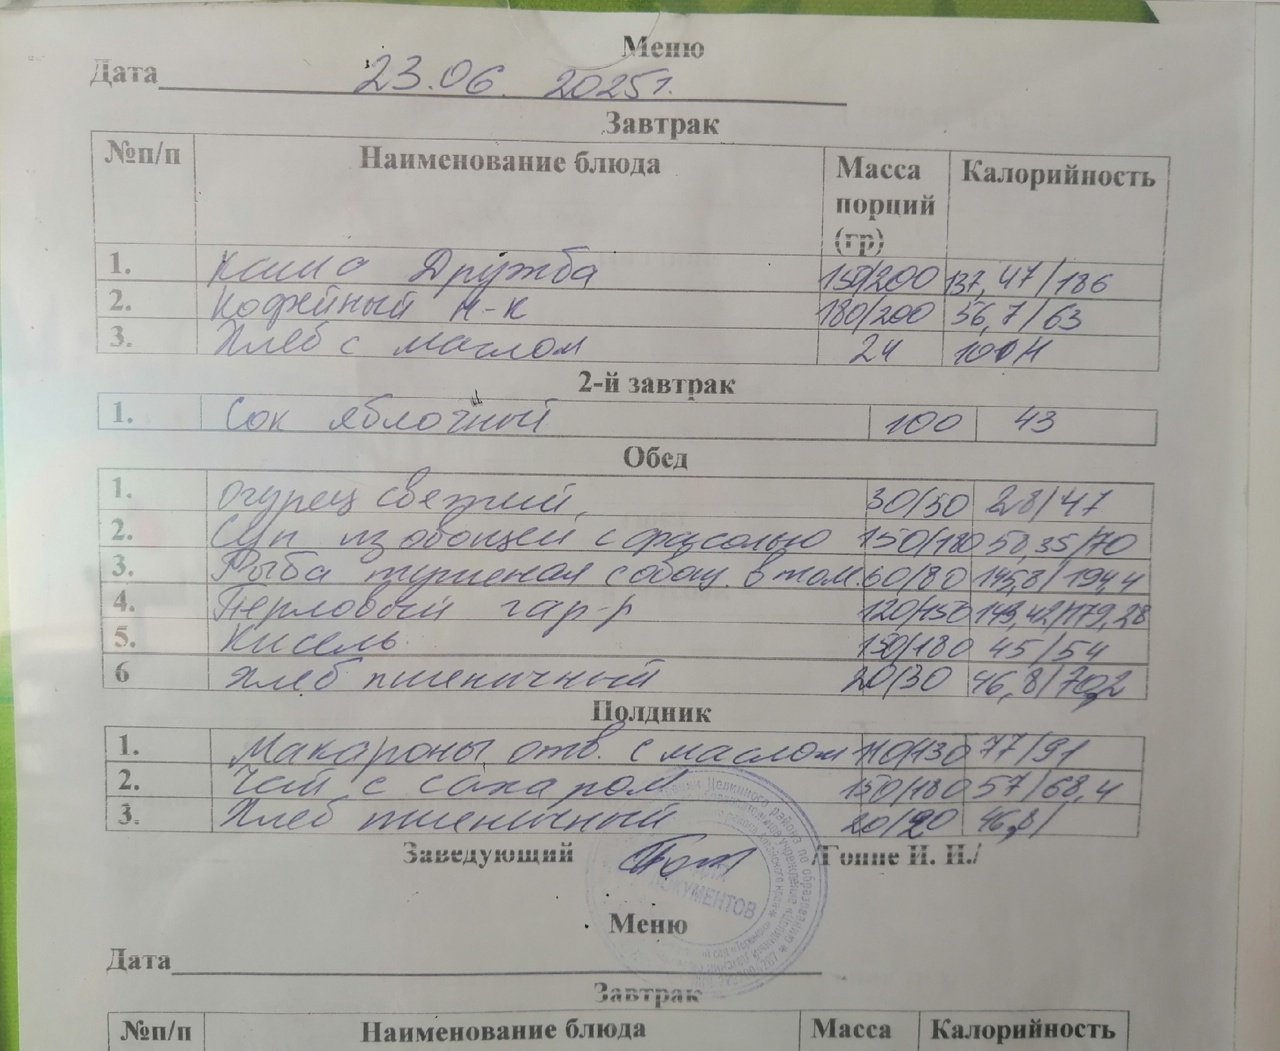 Меню
Дата 23.06. 2025г.
Завтрак
№п/п Наименование блюда Масса порций (гр) Калорийность
1. Каша Дружба 150/200 137,47/186
2. Кофейный н-к 180/200 56,7/63
3. Хлеб с маслом 24
2-й завтрак
1. Сок яблочный 100 43
Обед
1. Огурец свежий 30/50 28/47
2. Суп из овощей с фасолью 150/180 58,35/70
3. Рыба тушеная с овощ. в том. 60/80 145,8/194,4
4. Перловый гар-р 120/150 143,42/179,28
5. Кисель 150/180 45/54
6 Хлеб пшеничный 20/30 46,8/70,2
Полдник
1. Макароны отв. с маслом 110/130 77/91
2. Чай с сахаром 150/180 57/68,4
3. Хлеб пшеничный 20/20 46,8/
Заведующий /Гонне И. И./
ДОКУМЕНТОВ
Меню
Дата
Завтрак
№п/п Наименование блюда Масса Калорийность